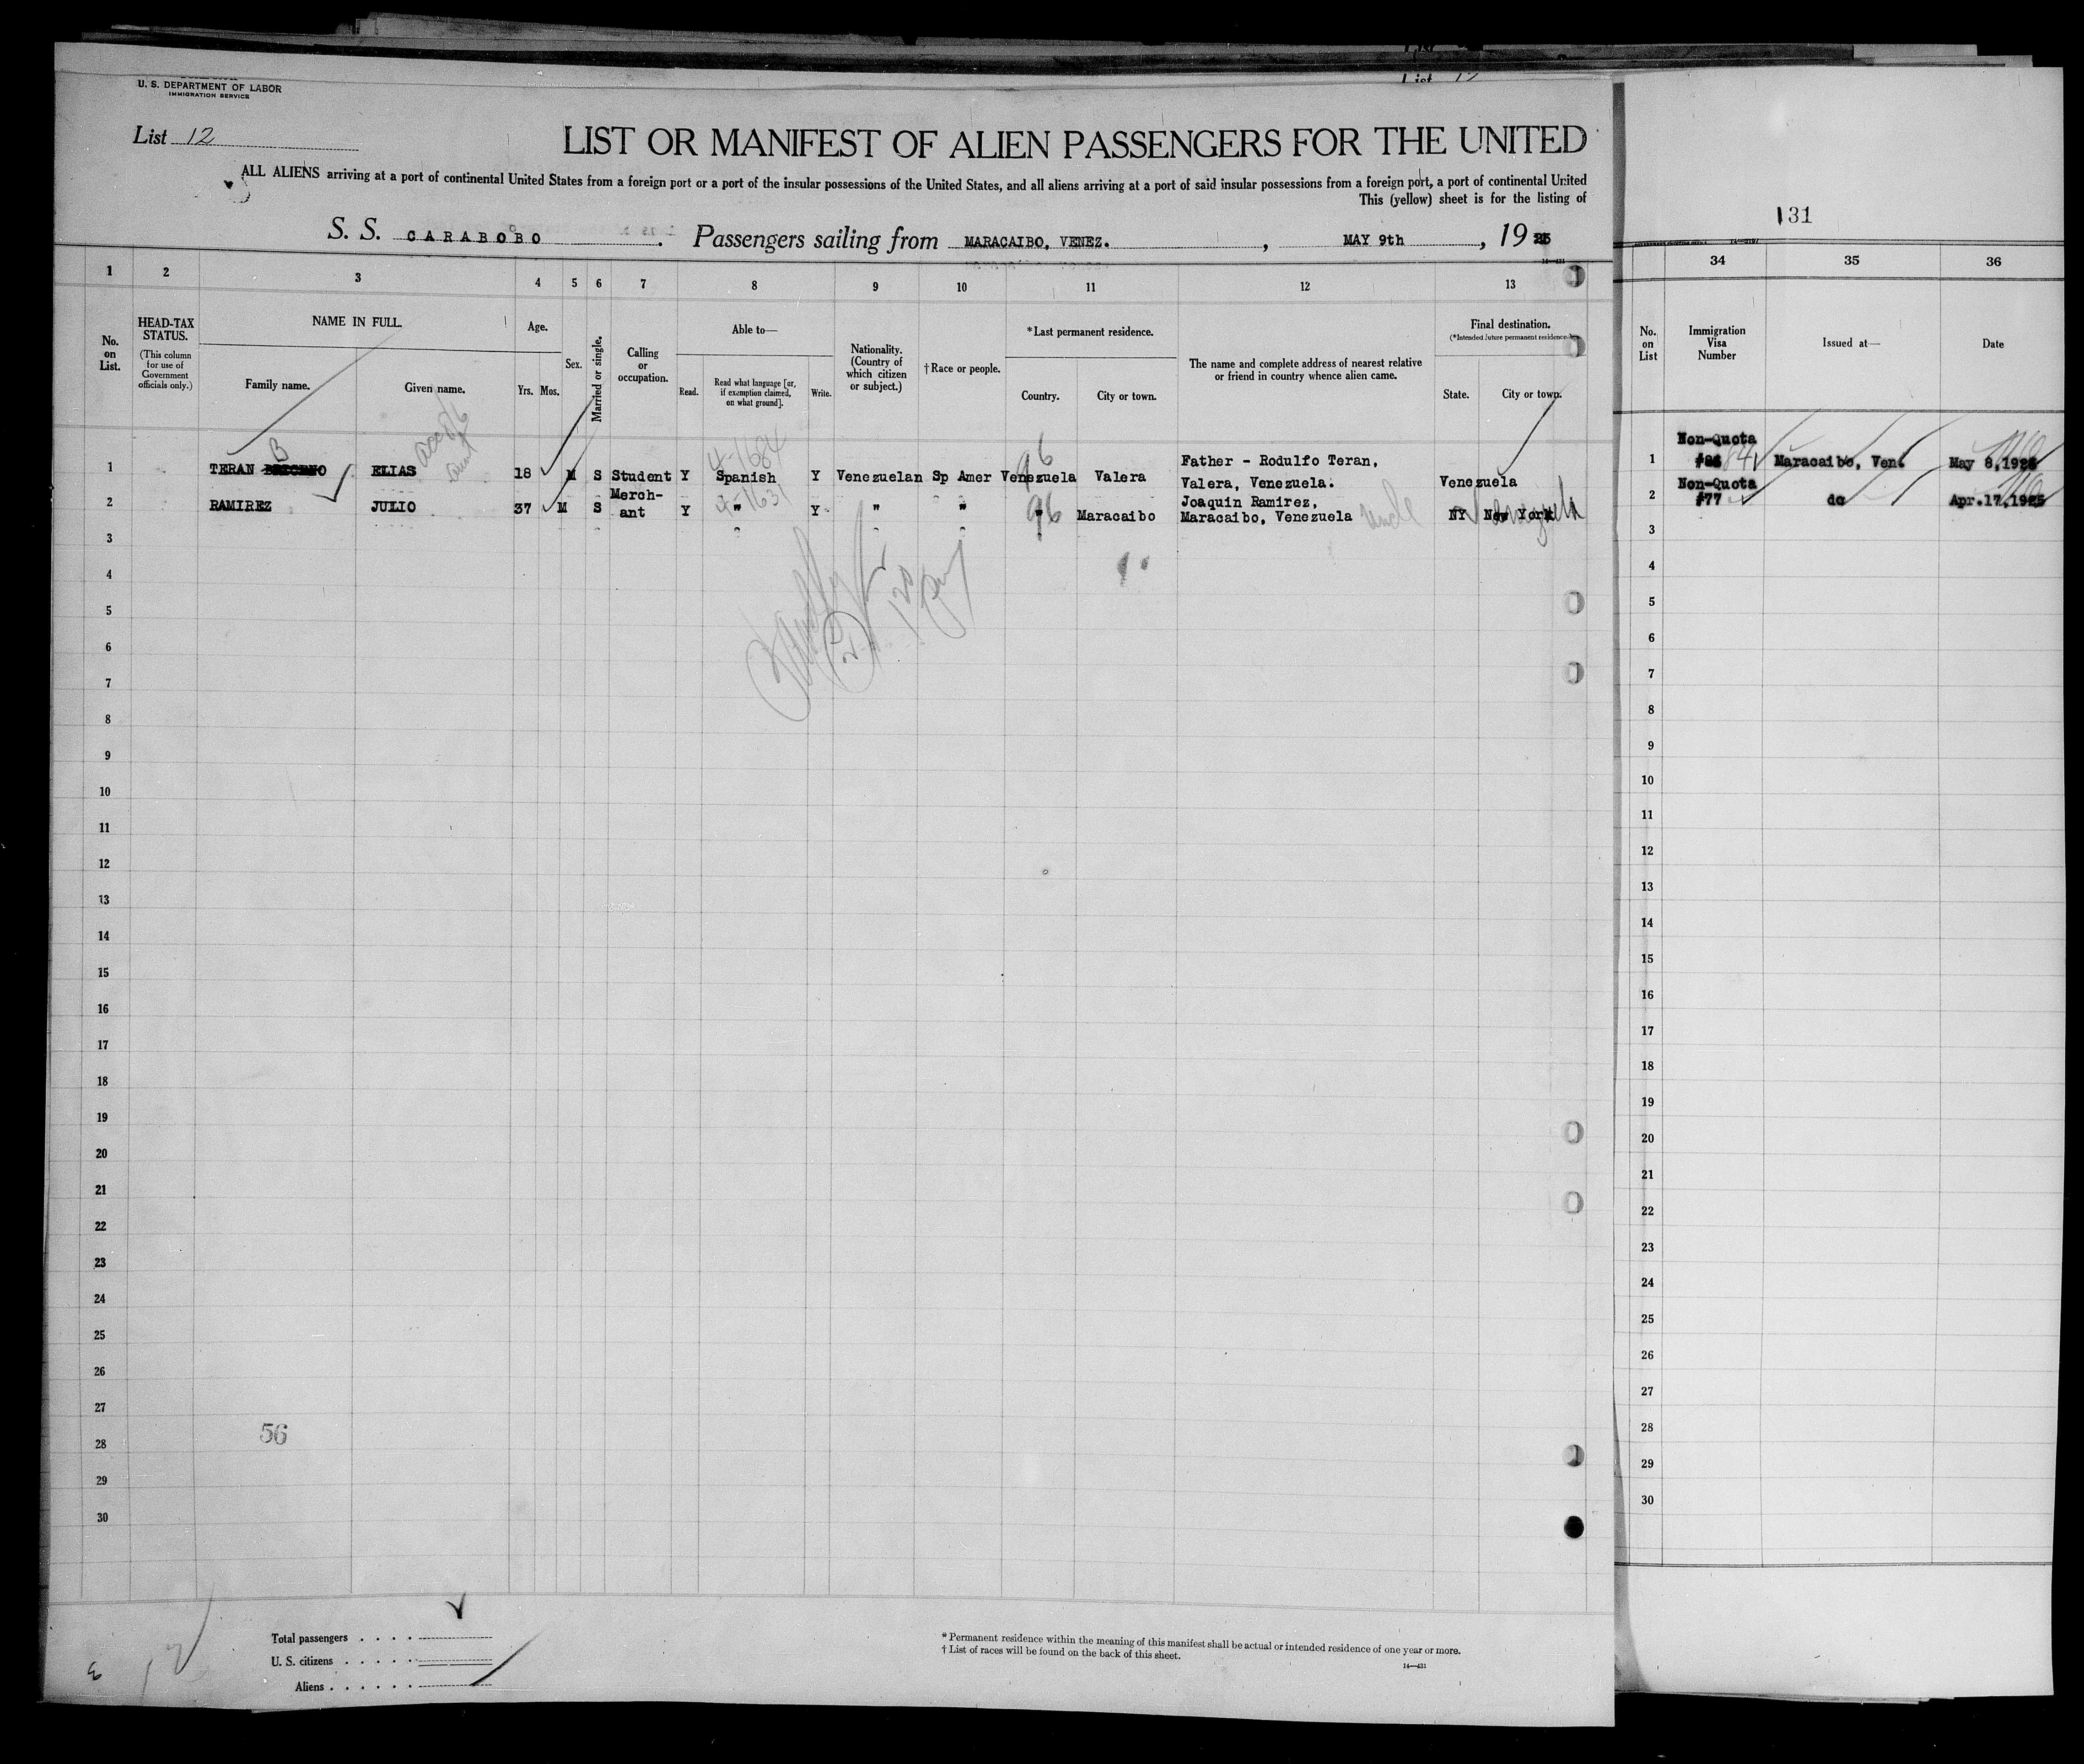 U. S. DEPARTMENT OF LABOR
IMMIGRATION SERVICE
List 12
LIST OR MANIFEST OF ALIEN PASSENGERS FOR THE UNITED
ALL ALIENS arriving at a port of continental United States from a foreign port or a port of the insular possessions of the United States, and all aliens arriving at a port of said insular possessions from a foreign port, a port of continental United
This (yellow) sheet is for the listing of
S. S. CARABOBO. Passengers sailing from MARACAIBO, VENEZ., MAY 9th, 1925
131
1 2 3 4 5 6 7 8 9 10 11 12 13
34 35 36
No. on List.
HEAD-TAX STATUS.
(This column for use of Government officials only.)
NAME IN FULL.
Family name. Given name.
Age.
Yrs. Mos.
Sex.
Married or single.
Calling or occupation.
Able to—
Read. Read what language [or, if exemption claimed, on what ground]. Write.
Nationality. (Country of which citizen or subject.)
†Race or people.
*Last permanent residence.
Country. City or town.
The name and complete address of nearest relative or friend in country whence alien came.
Final destination.
(*Intended future permanent residence.)
State. City or town.
No. on List
Immigration Visa Number
Issued at—
Date
1 TERAN B ELIAS 18 M S Student Y Spanish Y Venezuelan Sp Amer Venezuela Valera Father - Rodulfo Teran, Valera, Venezuela. Venezuela
1 Non-Quota 84 Maracaibo, Ven. May 8, 1925
2 RAMIREZ JULIO 37 M S Merch-ant Y " Y " " " Maracaibo Joaquin Ramirez, Maracaibo, Venezuela uncle NY New York
2 Non-Quota #77 do Apr.17,1925
4-1684
96
96
3 3
4 4
5 5
6 6
7 7
8 8
9 9
10 10
11 11
12 12
13 13
14 14
15 15
16 16
17 17
18 18
19 19
20 20
21 21
22 22
23 23
24 24
25 25
26 26
27 27
56
28 28
29 29
30 30
Total passengers . . . .
U. S. citizens . . . . .
Aliens . . . . . .
* Permanent residence within the meaning of this manifest shall be actual or intended residence of one year or more.
† List of races will be found on the back of this sheet.
14—431